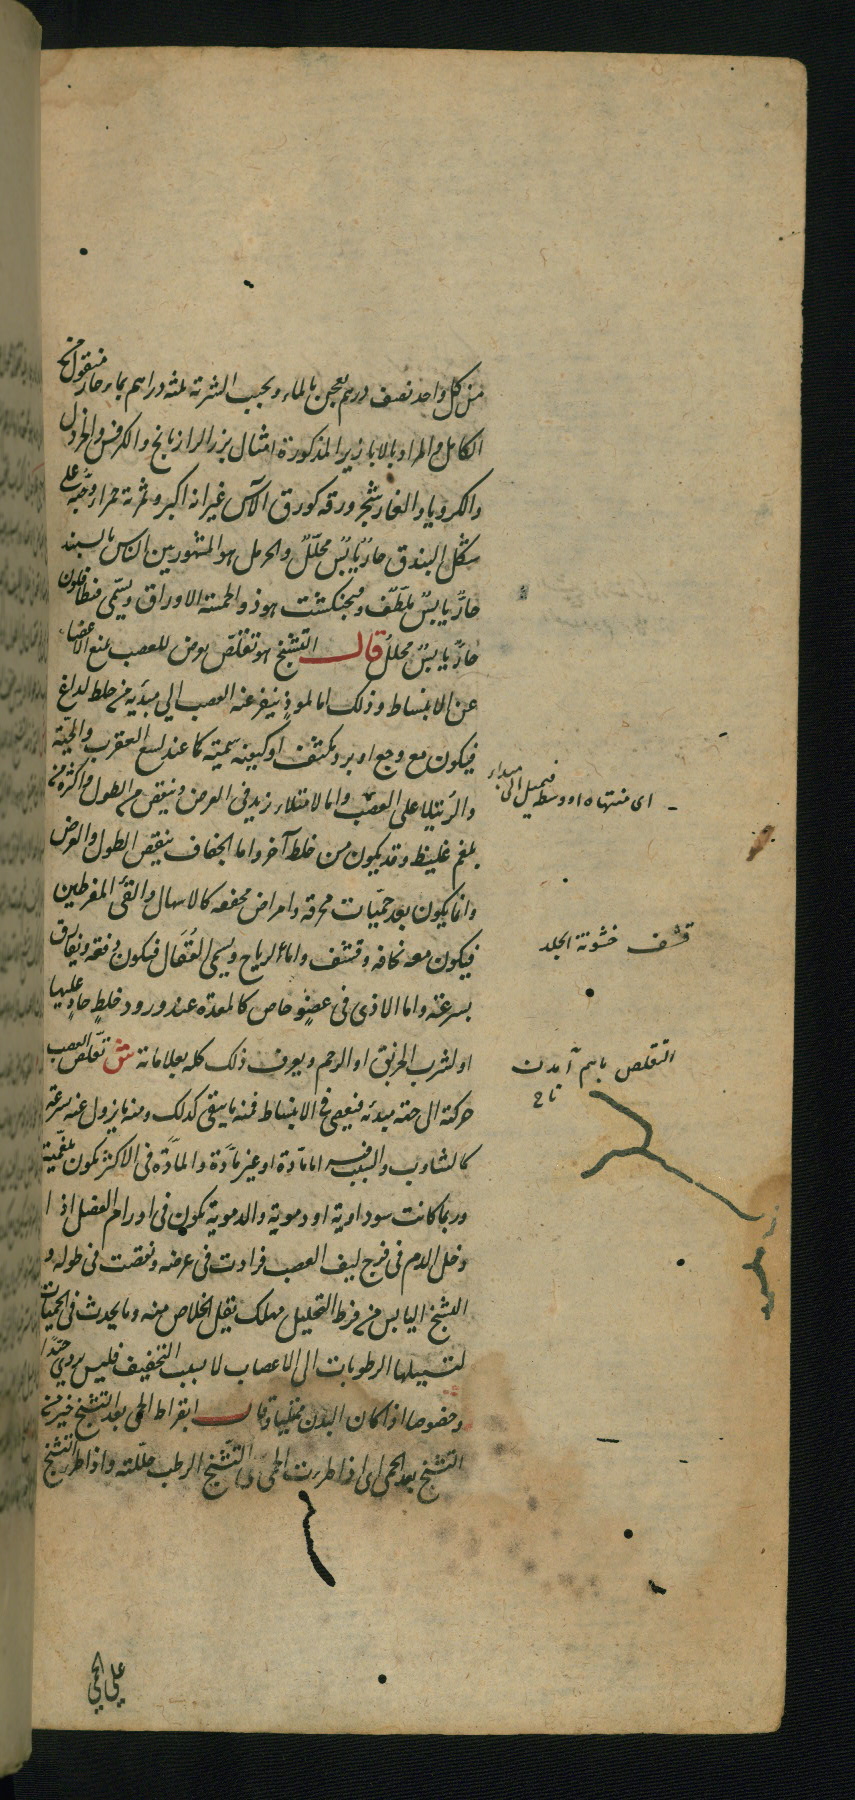 من كل واحد نصف درهم يعجن بالماء ويحبب الشربة ثلثه دراهم بماء حار منقول من
الكامل والمراد بالابازير المذكورة امثال بزر الرازيانج والكرفس والخردل
والكرويا والغار شجر ورقه كورق الآس غير انه اكبر وثمرته حمراء وحبّه على
شكل البندق حارّ يابس محلّل والحرمل هو المشهور بين الناس بالسبند
حارّ يابس ملطّف وفنجنكشت هو ذو الخمسة الاوراق ويسمّى فنطافلون
حارّ يابس محلل قال التشنج هو تقلّص يعرض للعصب يمنع الاعضاء
عن الانبساط وذلك اما لموذٍ ينفر عنه العصب الى مبدئه من خلط لداغ
فيكون مع وجع او برد مكثف او كيفية سمية كما عند لسع العقرب والحيّة
والرتيلا على العصب واما لامتلاء زيد فى العرض وينقص من الطول واكثره من
بلغم غليظ وقد يكون من خلط آخر واما الجفاف ينقص الطول والعرض
وانما يكون بعد حميات محرقة وامراض مجففه كالاسهال والقئ المفرطين
فيكون معه نحافه وقشف واما لرياح ويسمى العُقّال فيكون دفعه ويفارق
بسرعة واما الاذى فى عضو خاص كالمعدة عند ورود خلطٍ حادٍ عليها
او لشرب الخربق او الرحم ويعرف ذلك كله بعلاماته ش تقلّص العصب
حركته الى جهة مبدئه فيعصى فى الانبساط فمنه ما يبقى كذلك ومنه ما يزول عنه بسرعة
كالتثاوب والسبب فيه اما مادّة او غير مادّة والمادّة فى الاكثر تكون بلغمية
وربما كانت سوداوية او دموية والدموية تكون فى اورام العضل اذا
دخل الدم فى فرج ليف العصب فزادت فى عرضه ونقصت فى طوله و
التشنج اليابس من فرط التحليل مهلك يقل الخلاص منه وما يحدث فى الحميات
لتسييلها الرطوبات الى الاعصاب لا بسبب التجفيف فليس بردي جدّا
وخصوصا اذا كان البدن ممتليا وقال ابقراط الحمى بعد التشنج خير من
التشنج بعد الحمى اى اذا طرءت الحمى على التشنج الرطب حللته واذا طرء التشنج
على الحمى
اى منتهاه او وسطه فيميل الى مبداء
قشف خشونة الجلد
التقلص باهم آمدن
تاج